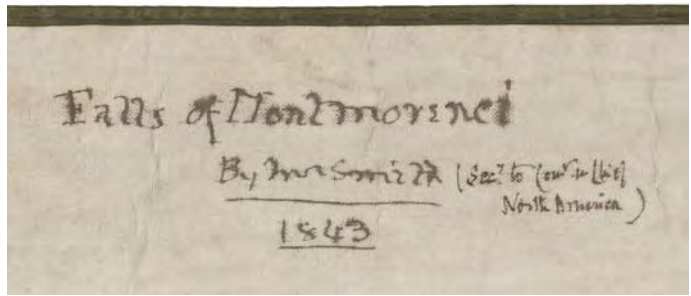 Falls of Montmorenci
By Mr Smith (Secy. to Comr in Chief
North America)
1843